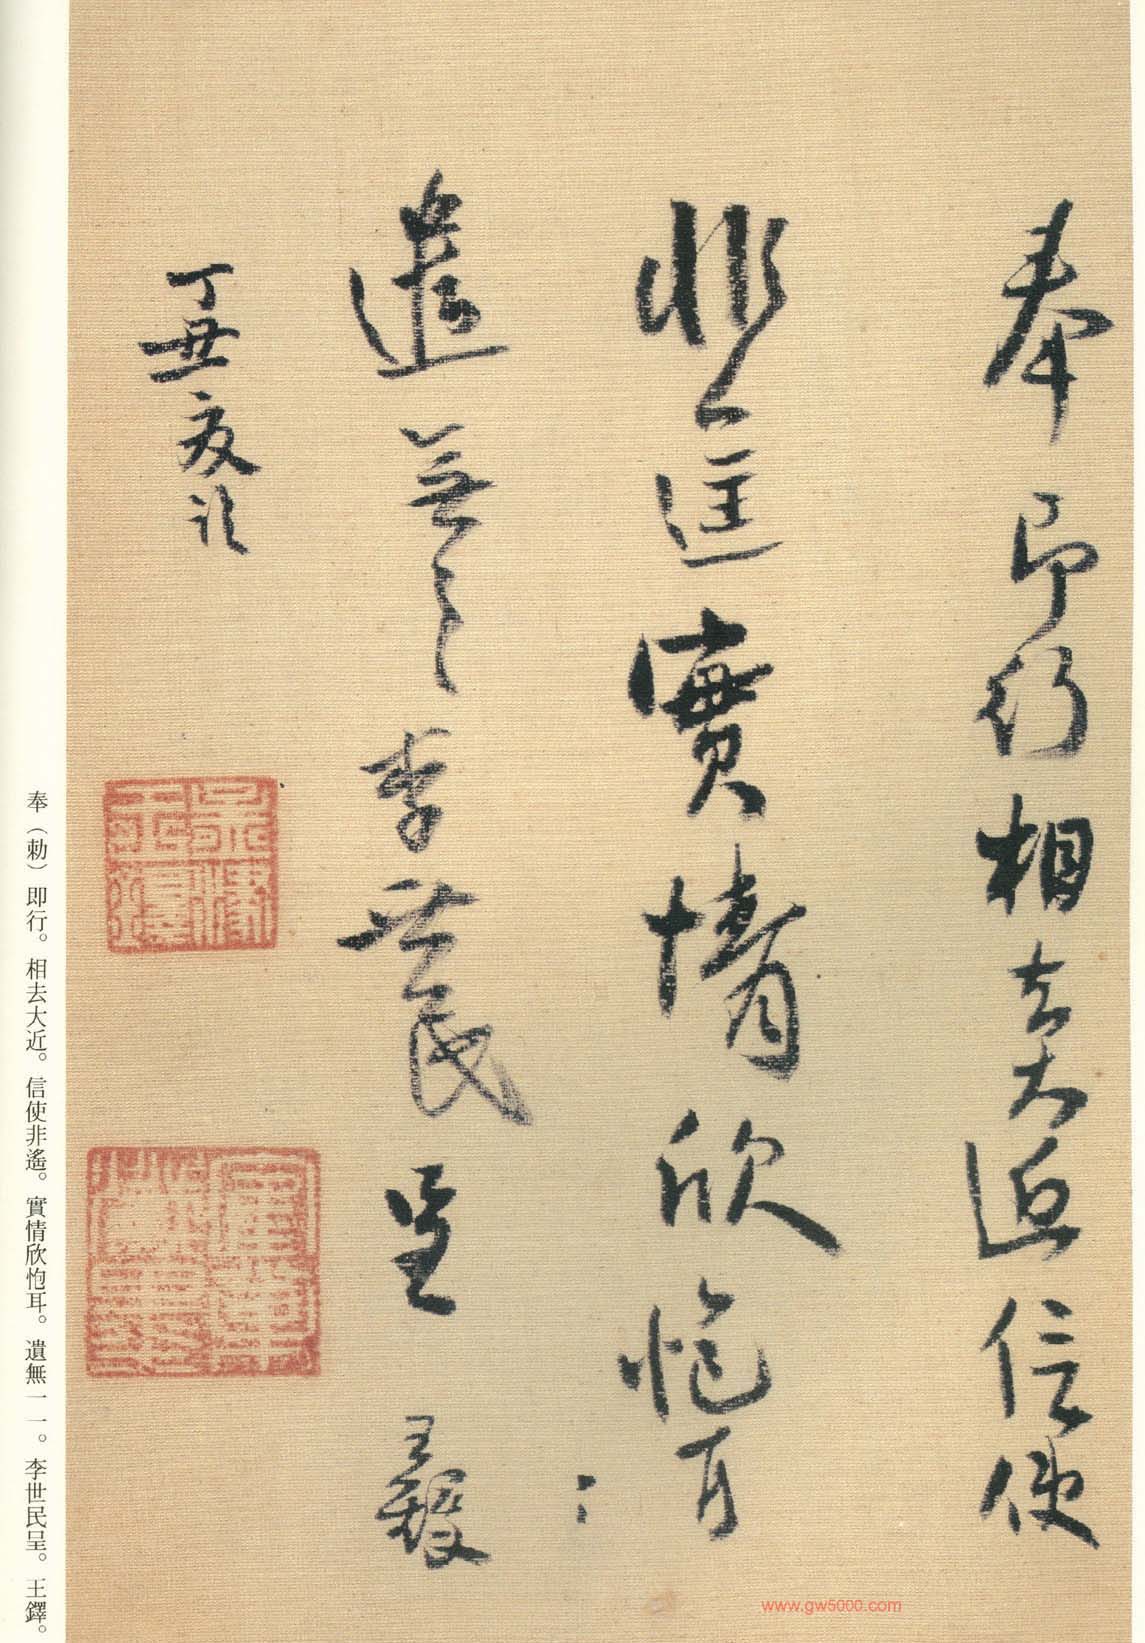 奉即行相去大近信使
非遙實情欣怉耳
遣無〻李世民呈 王鐸
丁丑夜臨
奉（勅）即行。相去大近。信使非遙。實情欣怉耳。遺無一一。李世民呈。王鐸。
www.gw5000.com